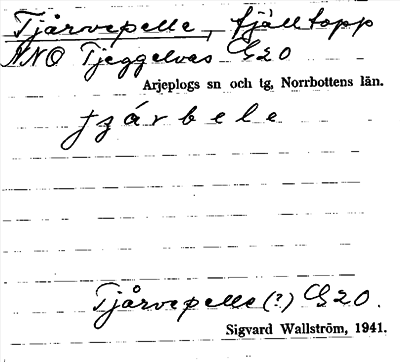 Tjårvepelle, fjälltopp
NNO Tjeggelvas G20
Arjeplogs sn och tg, Norrbottens län.
tjárbele
Tjårvepelle (?) G20.
Sigvard Wallström, 1941.